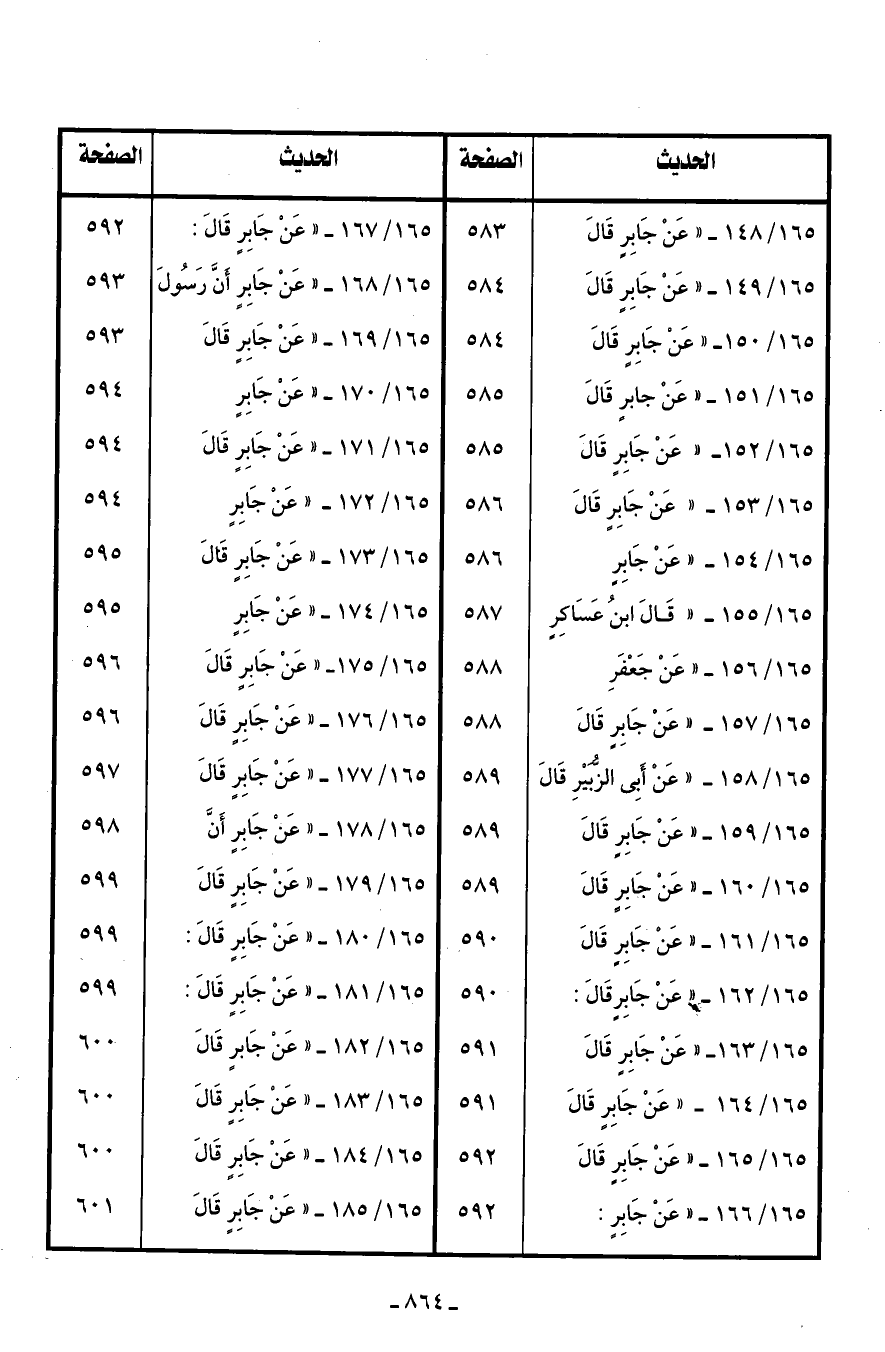 الحديث الصفحة الحديث الصفحة
١٤٨/١٦٥ ـ « عَنْ جَابِرٍ قَالَ ٥٨٣ ١٦٧/١٦٥ ـ « عَنْ جَابِرٍ قَالَ : ٥٩٢
١٤٩/١٦٥ ـ « عَنْ جَابِرٍ قَالَ ٥٨٤ ١٦٨/١٦٥ ـ « عَنْ جَابِرٍ أَنَّ رَسُولَ ٥٩٣
١٥٠/١٦٥ ـ « عَنْ جَابِرٍ قَالَ ٥٨٤ ١٦٩/١٦٥ ـ « عَنْ جَابِرٍ قَالَ ٥٩٣
١٥١/١٦٥ ـ « عَنْ جابرٍ قَالَ ٥٨٥ ١٧٠/١٦٥ ـ « عَنْ جَابِرٍ ٥٩٤
١٥٢/١٦٥ ـ « عَنْ جَابِرٍ قَالَ ٥٨٥ ١٧١/١٦٥ ـ « عَنْ جَابِرٍ قَالَ ٥٩٤
١٥٣/١٦٥ ـ « عَنْ جَابِرٍ قَالَ ٥٨٦ ١٧٢/١٦٥ ـ « عَنْ جَابِرٍ ٥٩٤
١٥٤/١٦٥ ـ « عَنْ جَابِرٍ ٥٨٦ ١٧٣/١٦٥ ـ « عَنْ جَابِرٍ قَالَ ٥٩٥
١٥٥/١٦٥ ـ « قَـالَ ابنُ عَسَاكِرٍ ٥٨٧ ١٧٤/١٦٥ ـ « عَنْ جَابِرٍ ٥٩٥
١٥٦/١٦٥ ـ « عَنْ جَعْفَرِ ٥٨٨ ١٧٥/١٦٥ ـ « عَنْ جَابِرٍ قَالَ ٥٩٦
١٥٧/١٦٥ ـ « عَنْ جَابِرٍ قَالَ ٥٨٨ ١٧٦/١٦٥ ـ « عَنْ جَابِرٍ قَالَ ٥٩٦
١٥٨/١٦٥ ـ « عَنْ أَبِى الزُّبَيْرِ قَالَ ٥٨٩ ١٧٧/١٦٥ ـ « عَنْ جَابِرٍ قَالَ ٥٩٧
١٥٩/١٦٥ ـ « عَنْ جَابِرٍ قَالَ ٥٨٩ ١٧٨/١٦٥ ـ « عَنْ جَابِرٍ أَنَّ ٥٩٨
١٦٠/١٦٥ ـ « عَنْ جَابِرٍ قَالَ ٥٨٩ ١٧٩/١٦٥ ـ « عَنْ جَابِرٍ قَالَ ٥٩٩
١٦١/١٦٥ ـ « عَنْ جَابِرٍ قَالَ ٥٩٠ ١٨٠/١٦٥ ـ « عَنْ جَابِرٍ قَالَ : ٥٩٩
١٦٢/١٦٥ ـ « عَنْ جَابِرٍ قَالَ : ٥٩٠ ١٨١/١٦٥ ـ « عَنْ جَابِرٍ قَالَ : ٥٩٩
١٦٣/١٦٥ ـ « عَنْ جَابِرٍ قَالَ ٥٩١ ١٨٢/١٦٥ ـ « عَنْ جَابِرٍ قَالَ ٦٠٠
١٦٤/١٦٥ ـ « عَنْ جَابِرٍ قَالَ ٥٩١ ١٨٣/١٦٥ ـ « عَنْ جَابِرٍ قَالَ ٦٠٠
١٦٥/١٦٥ ـ « عَنْ جَابِرٍ قَالَ ٥٩٢ ١٨٤/١٦٥ ـ « عَنْ جَابِرٍ قَالَ ٦٠٠
١٦٦/١٦٥ ـ « عَنْ جَابِرٍ : ٥٩٢ ١٨٥/١٦٥ ـ « عَنْ جَابِرٍ قَالَ ٦٠١
ـ ٨٦٤ ـ